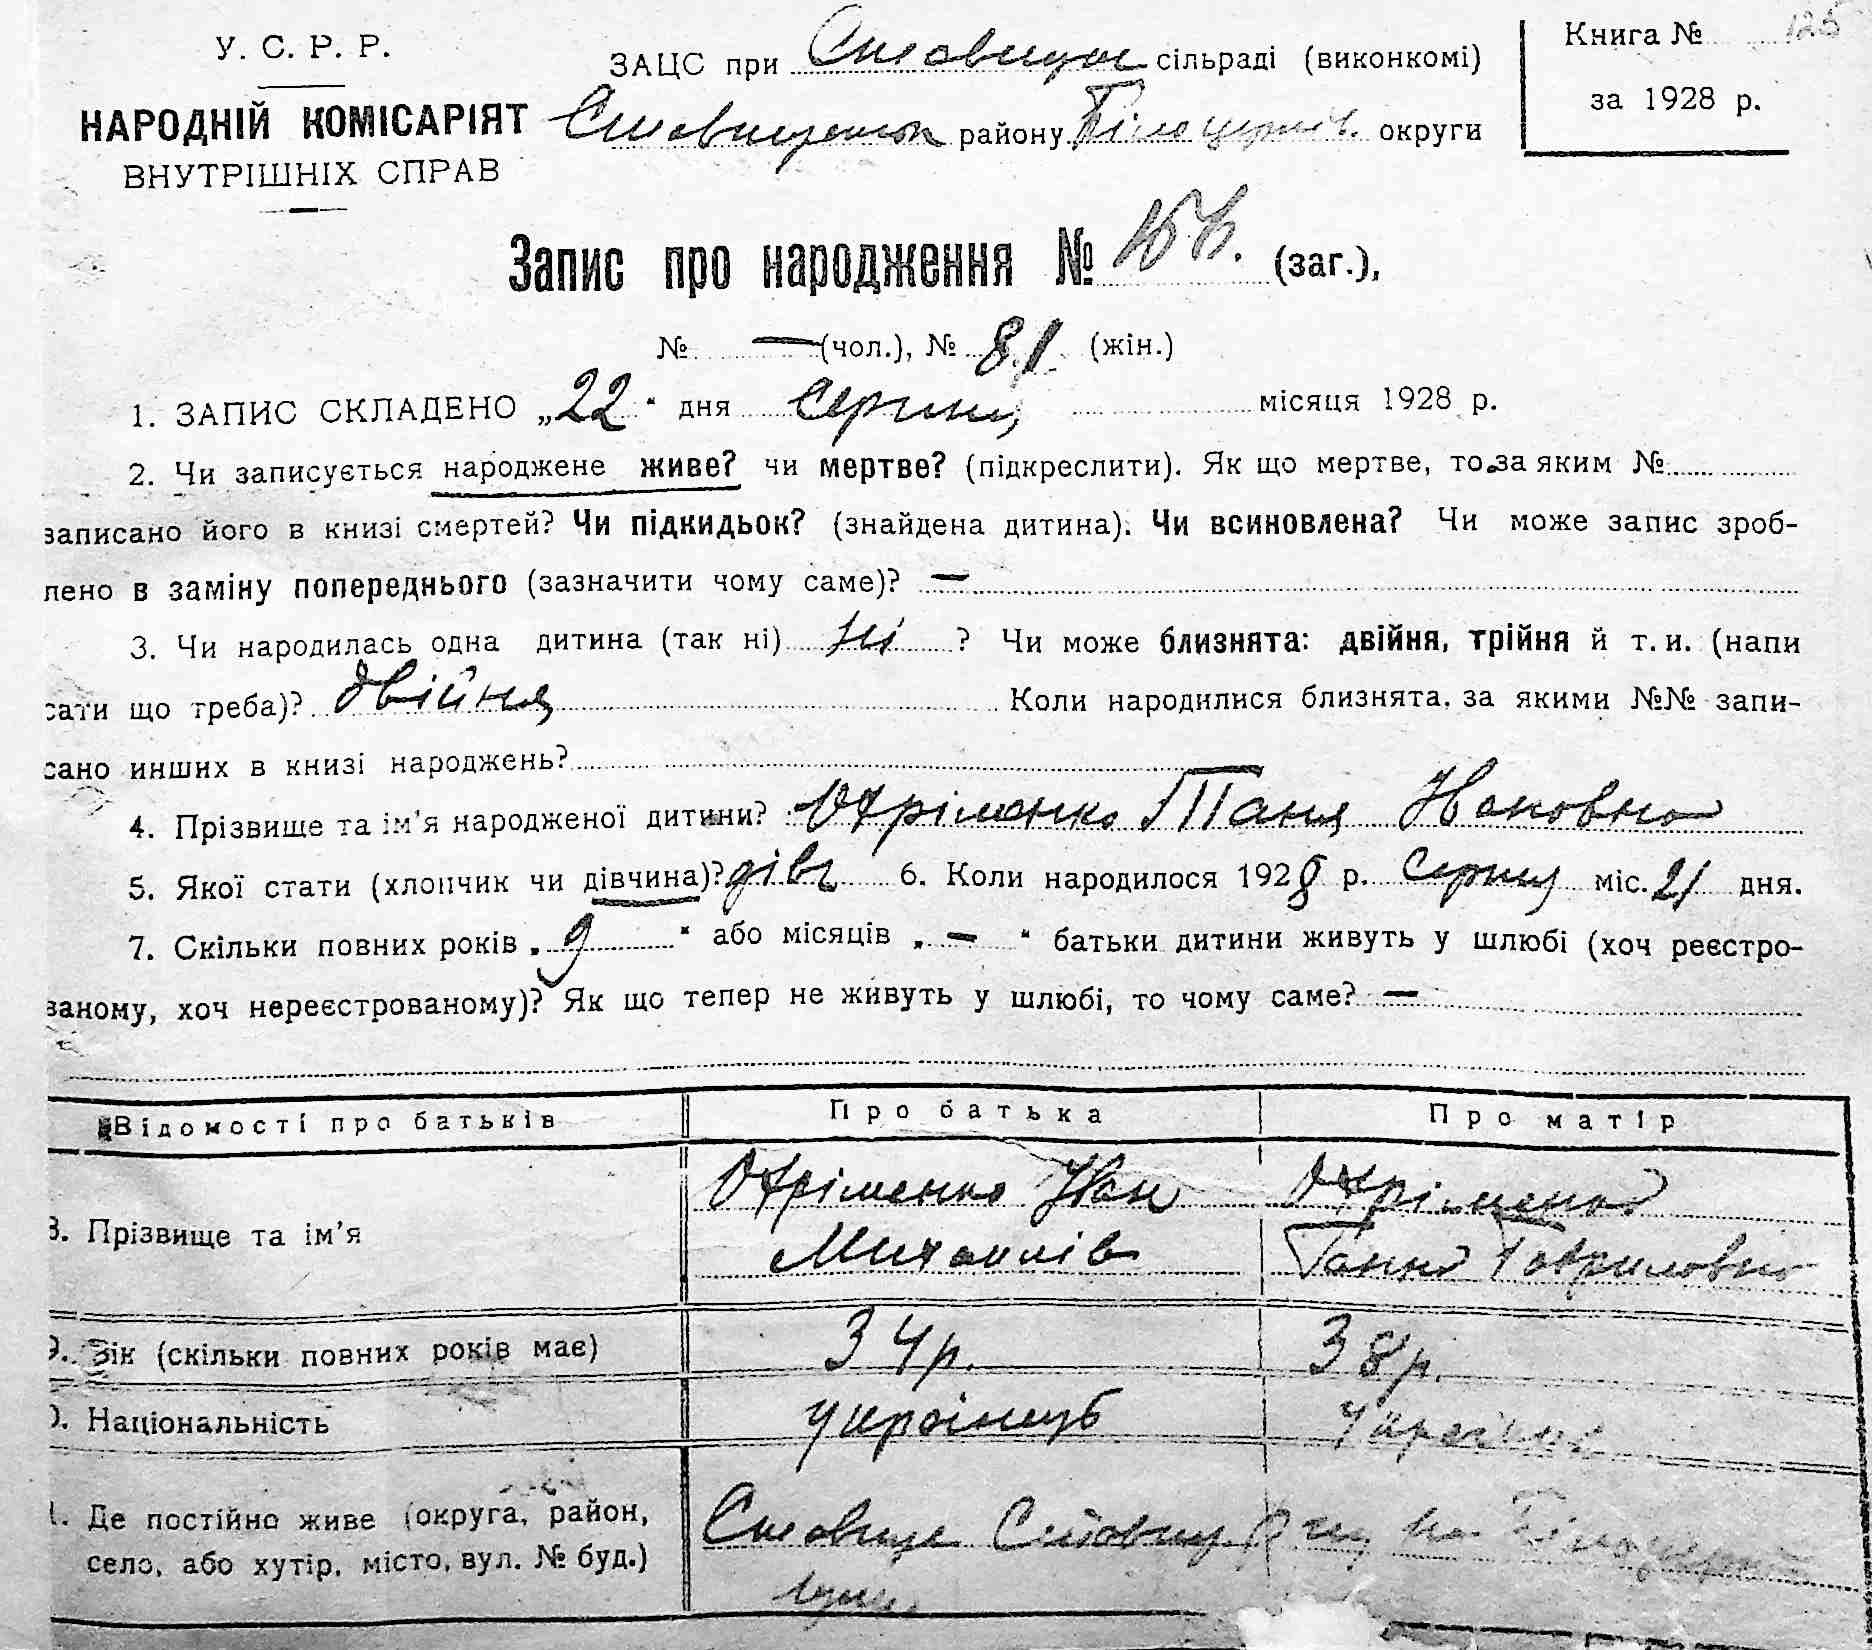 У. С. Р. Р.
НАРОДНІЙ КОМІСАРІЯТ
ВНУТРІШНІХ СПРАВ
ЗАЦС при Ставищи сільраді (виконкомі)
Ставищенськ району Білоцерків. округи
Книга № 125
за 1928 р.
Запис про народження № (заг.),
№ — (чол.), № 81 (жін.)
1. ЗАПИС СКЛАДЕНО „22" дня серпня місяця 1928 р.
2. Чи записується народжене живе? чи мертве? (підкреслити). Як що мертве, то за яким №
записано його в книзі смертей? Чи підкидьок? (знайдена дитина). Чи всиновлена? Чи може запис зроб-
лено в заміну попереднього (зазначити чому саме)? —
3. Чи народилась одна дитина (так ні) ні ? Чи може близнята: двійня, трійня й т. и. (напи
сати що треба)? двійня Коли народилися близнята, за якими №№ запи-
сано инших в книзі народжень?
4. Прізвище та ім'я народженої дитини? Охріменко Таня Ивановна
5. Якої стати (хлопчик чи дівчина)? дівч 6. Коли народилося 1928 р. серпня міс. 21 дня.
7. Скільки повних років „9" або місяців „—" батьки дитини живуть у шлюбі (хоч реєстро-
ваному, хоч нереєстрованому)? Як що тепер не живуть у шлюбі, то чому саме? —
Відомості про батьків Про батька Про матір
8. Прізвище та ім'я Охріменко Иван Охріменко
Михайлів Ганна Гавриловна
9. Вік (скільки повних років має) 34 р. 38 р.
0. Національність українець Українка
1. Де постійно живе (округа, район, Ставище Ставищ. р
село, або хутір, місто, вул. № буд.)